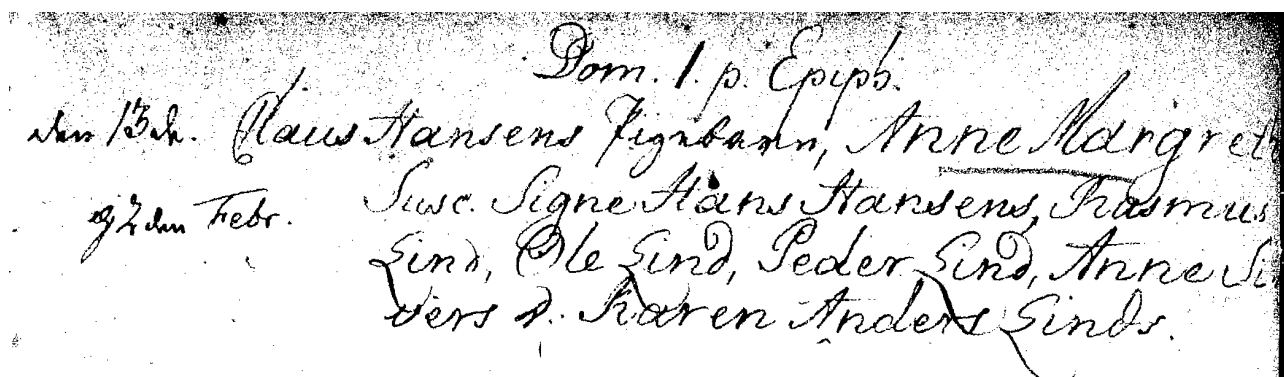 Dom. 1. p. Epiph.
den 13de. Claus Hansens Pigebarn, Anne Margreth
Susc. Signe Hans Hansens, Rasmus
2den Febr.
Lind, Ole Lind, Peder Lind, Anne Si
vers d. Karen Anders Linds.